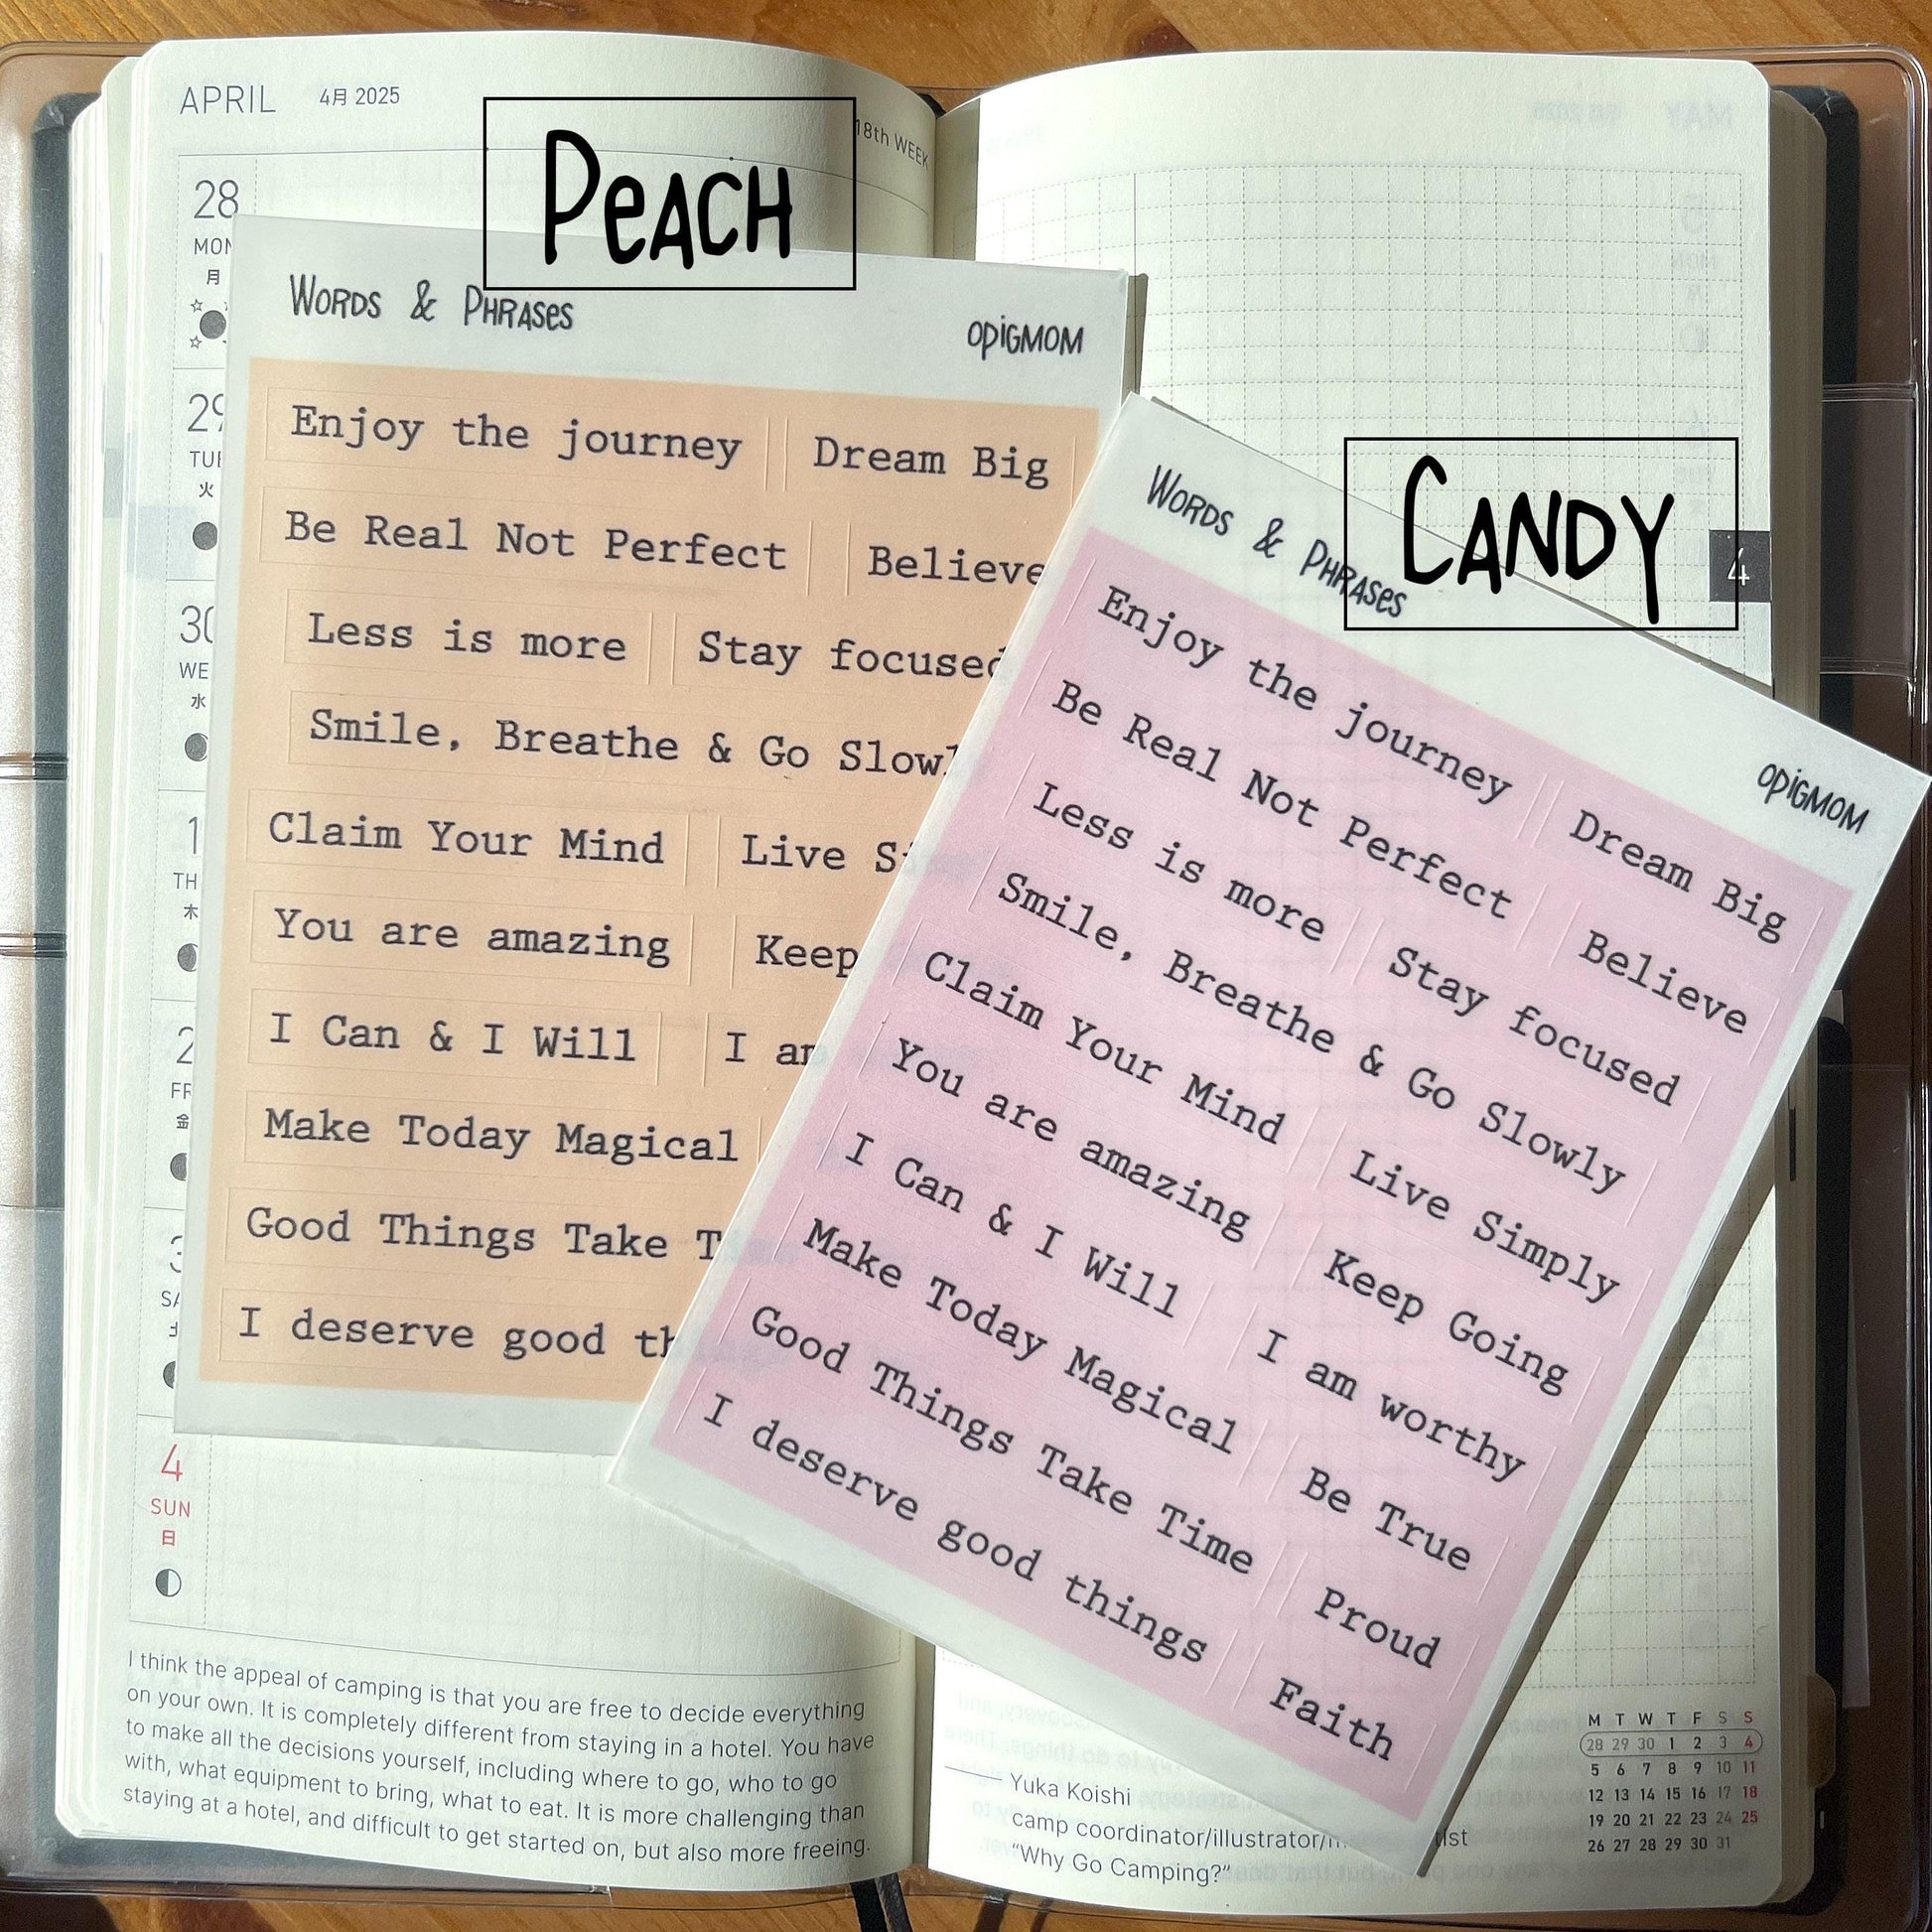 APRIL 4月 2025
18th WEEK
28
MON
月
29
TUE
火
30
WE
水
1
TH
木
2
FR
金
3
SA
4
SUN
日
PEACH
WORDS & PHRASES
OPIGMOM
Enjoy the journey Dream Big
Be Real Not Perfect Believe
Less is more Stay focused
Smile, Breathe & Go Slowl
Claim Your Mind Live S
You are amazing Keep
I Can & I Will I am
Make Today Magical
Good Things Take T
I deserve good th
CANDY
4
WORDS & PHRASES
OPIGMOM
Enjoy the journey Dream Big
Be Real Not Perfect Believe
Less is more Stay focused
Smile, Breathe & Go Slowly
Claim Your Mind Live Simply
You are amazing Keep Going
I Can & I Will I am worthy
Make Today Magical Be True
Good Things Take Time Proud
I deserve good things Faith
I think the appeal of camping is that you are free to decide everything
on your own. It is completely different from staying in a hotel. You have
to make all the decisions yourself, including where to go, who to go
with, what equipment to bring, what to eat. It is more challenging than
staying at a hotel, and difficult to get started on, but also more freeing.
Yuka Koishi
camp coordinator/illustrator/
"Why Go Camping?"
M T W T F S S
28 29 30 1 2 3 4
5 6 7 8 9 10 11
12 13 14 15 16 17 18
19 20 21 22 23 24 25
26 27 28 29 30 31